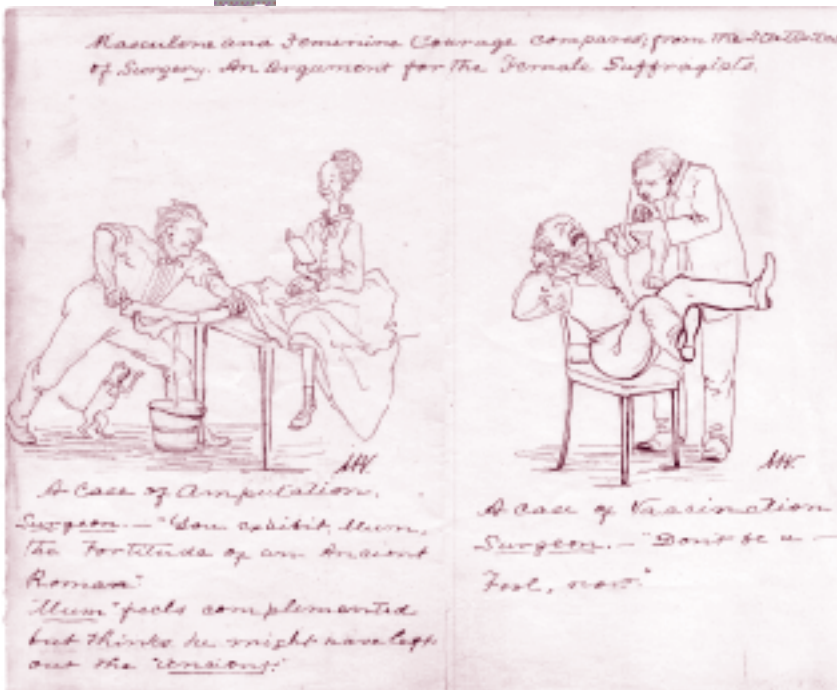 Masculine and Femenine Courage compared; from the
of Surgery. An Argument for the Female Suffragists.
AW.
A Case of Amputation.
Surgeon. — "You exhibit, Mum,
the Fortitude of an Ancient
Roman"
"Mum" feels complemented
but thinks he might have left
out the "ancient."
AW.
A Case of Vaccination
Surgeon. — "Don't be a —
Fool, now."